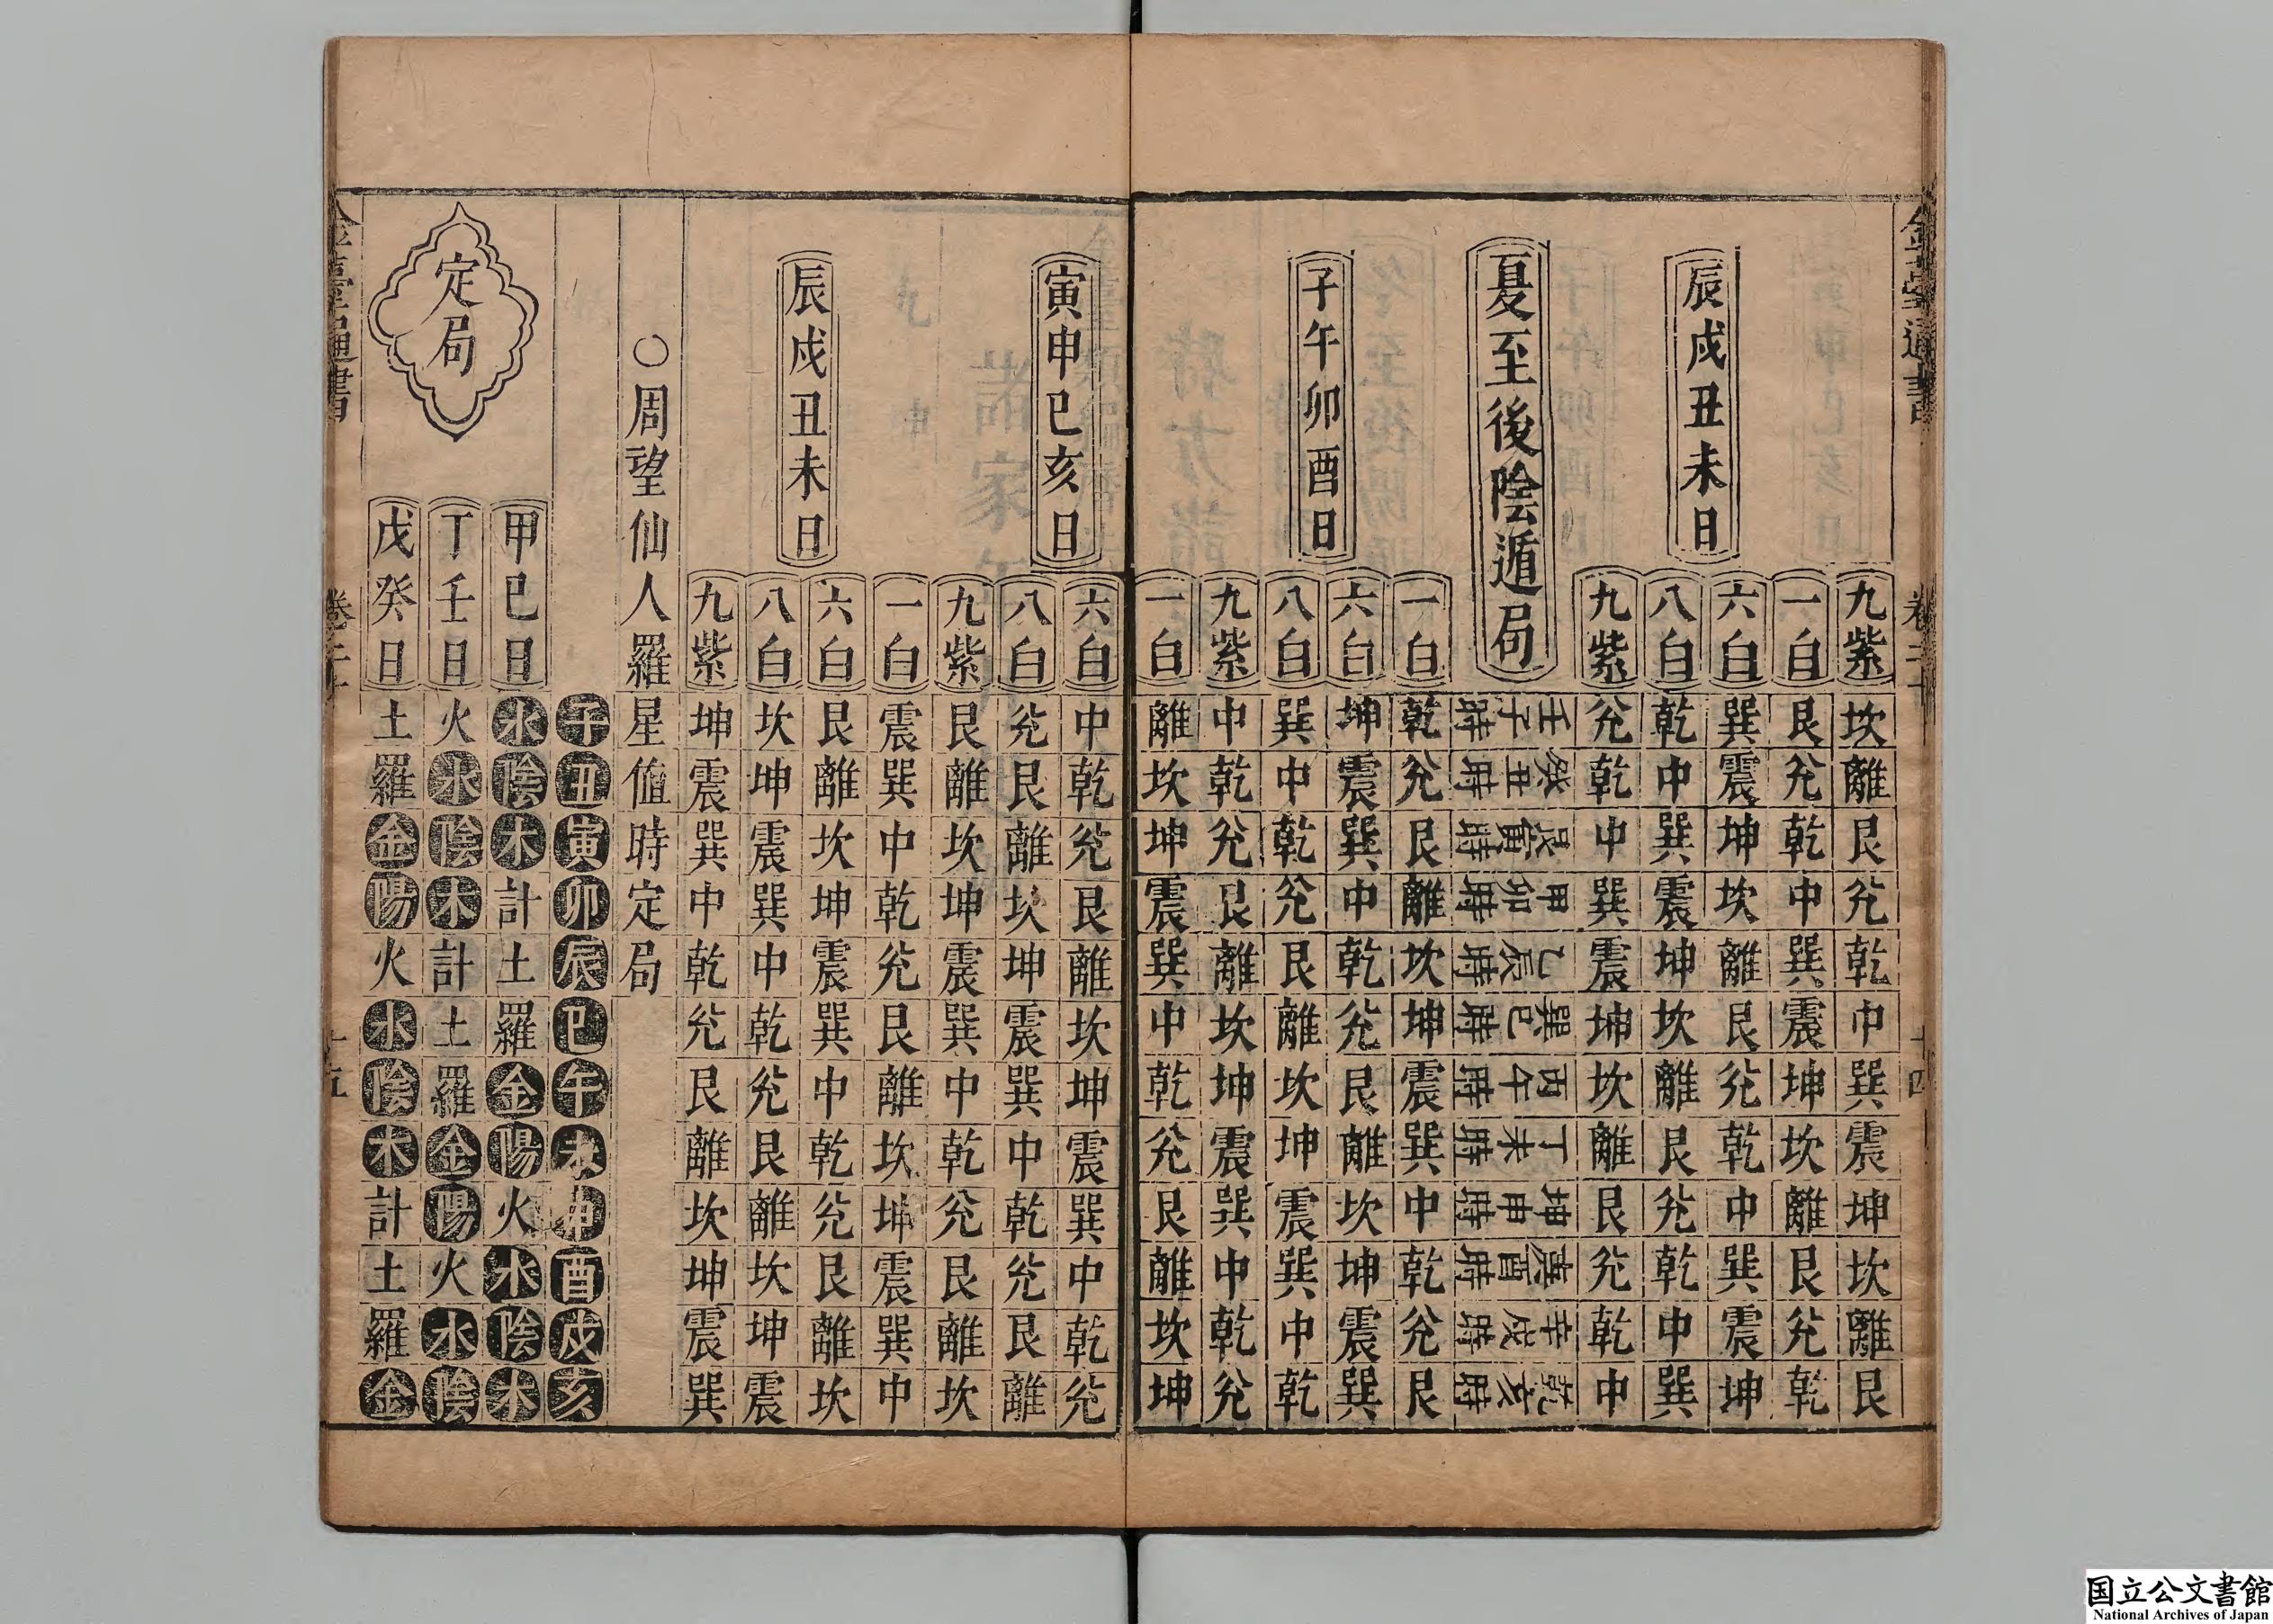 金臺通書 卷二十 十四
九紫 坎離艮兊乾中巽震坤坎離艮
辰戌丑未日
一白 艮兊乾中巽震坤坎離艮兊乾
六白 巽震坤坎離艮兊乾中巽震坤
八白 乾中巽震坤坎離艮兊乾中巽
九紫 兊乾中巽震坤坎離艮兊乾中
夏至後陰遁局
壬子時 癸丑時 艮寅時 甲卯時 乙辰時 巽巳時 丙午時 丁未時 坤申時 庚酉時 辛戌時 乾亥時
子午卯酉日
一白 乾兊艮離坎坤震巽中乾兊艮
六白 坤震巽中乾兊艮離坎坤震巽
八白 巽中乾兊艮離坎坤震巽中乾
九紫 中乾兊艮離坎坤震巽中乾兊
寅申巳亥日
一白 離坎坤震巽中乾兊艮離坎坤
六白 中乾兊艮離坎坤震巽中乾兊
八白 兊艮離坎坤震巽中乾兊艮離
九紫 艮離坎坤震巽中乾兊艮離坎
辰戌丑未日
一白 震巽中乾兊艮離坎坤震巽中
六白 艮離坎坤震巽中乾兊艮離坎
八白 坎坤震巽中乾兊艮離坎坤震
九紫 坤震巽中乾兊艮離坎坤震巽
○周望仙人羅星值時定局
子丑寅卯辰巳午未申酉戌亥
定局
甲巳日 水陰木計土羅金陽火水陰木
丁壬日 火水陰木計土羅金陽火水陰
戊癸日 土羅金陽火水陰木計土羅金
金臺通書 卷二十 十五
国立公文書館
National Archives of Japan